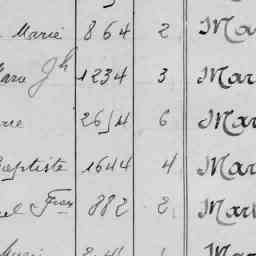 Marie 864 2 Ma
Marie Jh 1234 3 Mar
rie 2654 6 Mar
Baptiste 1644 4 Mar
el Fran 882 2 Mar